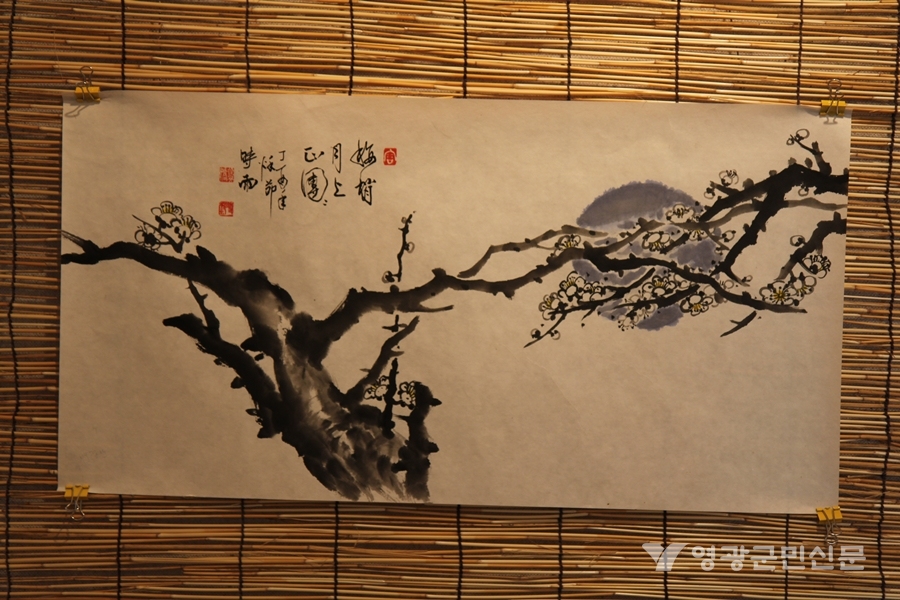 梅梢
月上
正團〻
丁亥年
節
時雨
영광군민신문